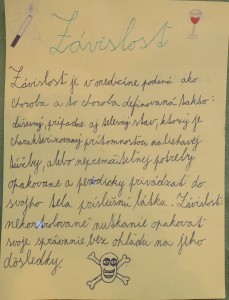 Závislosť
Závislosť je v medicíne podaná ako
choroba a to choroba definovaná takto:
duševný, prípadne aj telesný stav, ktorý je
charakterizovaný prítomnosťou naliehavej
túžby, alebo nepremožiteľnej potreby
opakovane a periodicky privádzať do
svojho tela príslušnú látku. Závislosť
nekontrolované nutkanie opakovať
svoje správanie bez ohľadu na jeho
dôsledky.